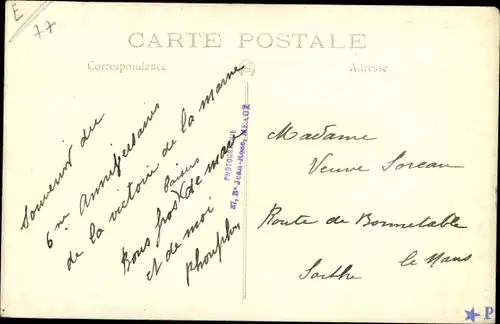 E
77
CARTE POSTALE
Correspondance
Adresse
Souvenir du
6me Anniversaire
de la victoire de la marne
Bons gros baisers de
et de moi
PHOTOGRAPHIE
37, Bd Jean-Rose, MEAUX
Madame
Veuve Soreau
Route de Bonnetable
le Mans
Sarthe
P